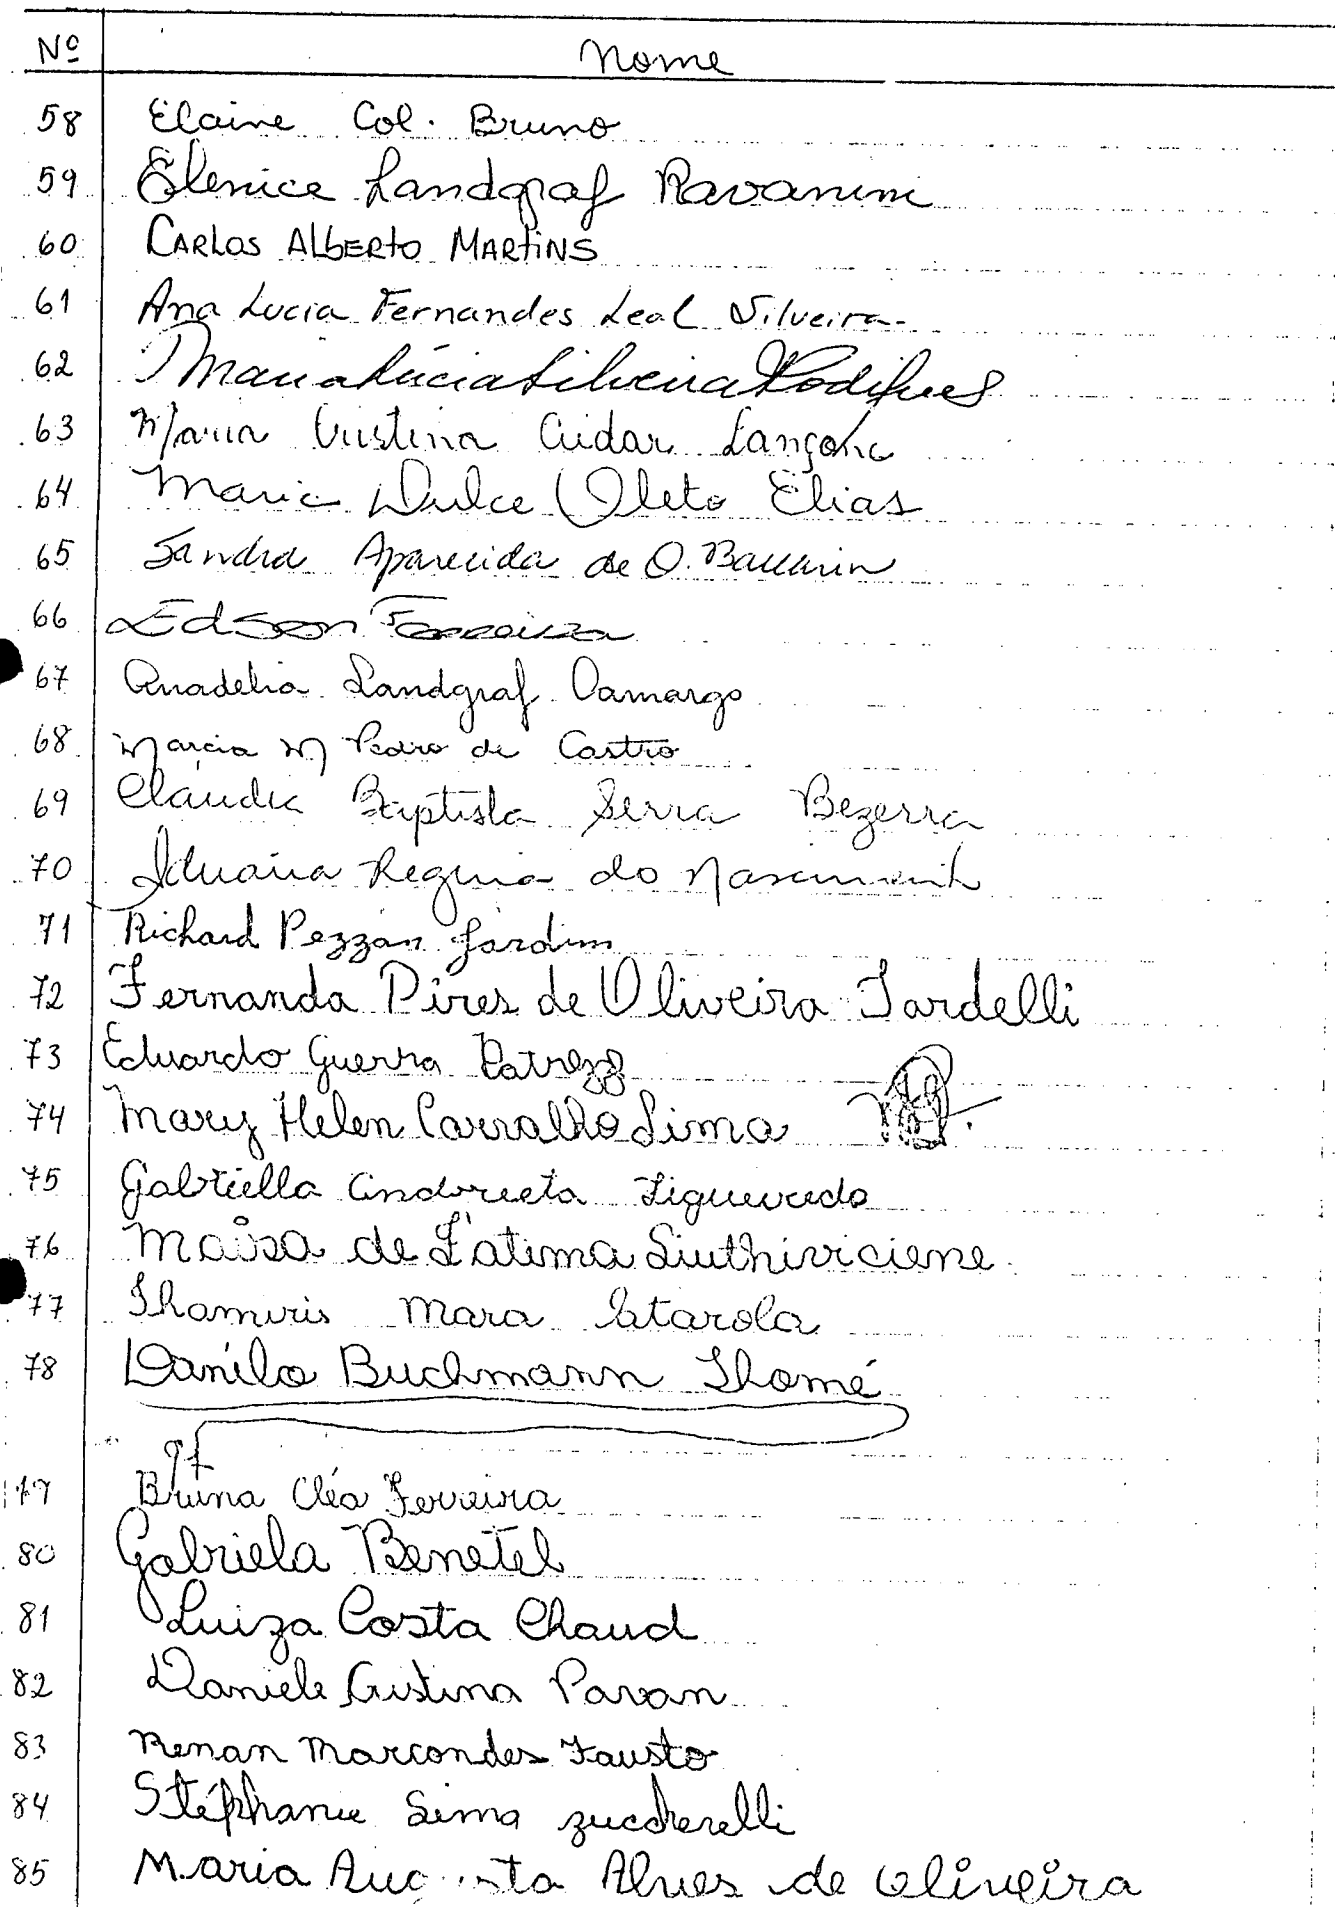 Nº Nome
58 Elaine Col. Bruno
59 Elenice Landgraf Ravanini
60 CARLOS ALBERTO MARTINS
61 Ana Lucia Fernandes Leal Silveira
62 Maria Lúcia Silveira Rodrigues
63 Maria Cristina Cuidar
64 Maria Dulce Oleto Elias
65 Sandra Aparecida de O. Baccarin
66 Edson Ferreira
67 Anadelia Landgraf Camargo
68 Marcia M Pedro de Castro
69 Cláudia Baptista Serra Bezerra
70 Regina do Nascimento
71 Richard Pezzan Jardim
72 Fernanda Pires de Oliveira Tardelli
73 Eduardo Guerra
74 Mary Helen Carvalho Lima
75 Gabriella Andorieta Figueiredo
76 Maísa de Fátima Siuthiviciene
77 Thamiris Mara
78 Danilo Buchmann Thomé
79 Bruna Cléa Ferreira
80 Gabriela Benetel
81 Luiza Costa Chaud
82 Daniele Cristina Pavan
83 Renan Marcondes Fausto
84 Stéphanie Lima Zuccherelli
85 Maria Augusta Alves de Oliveira